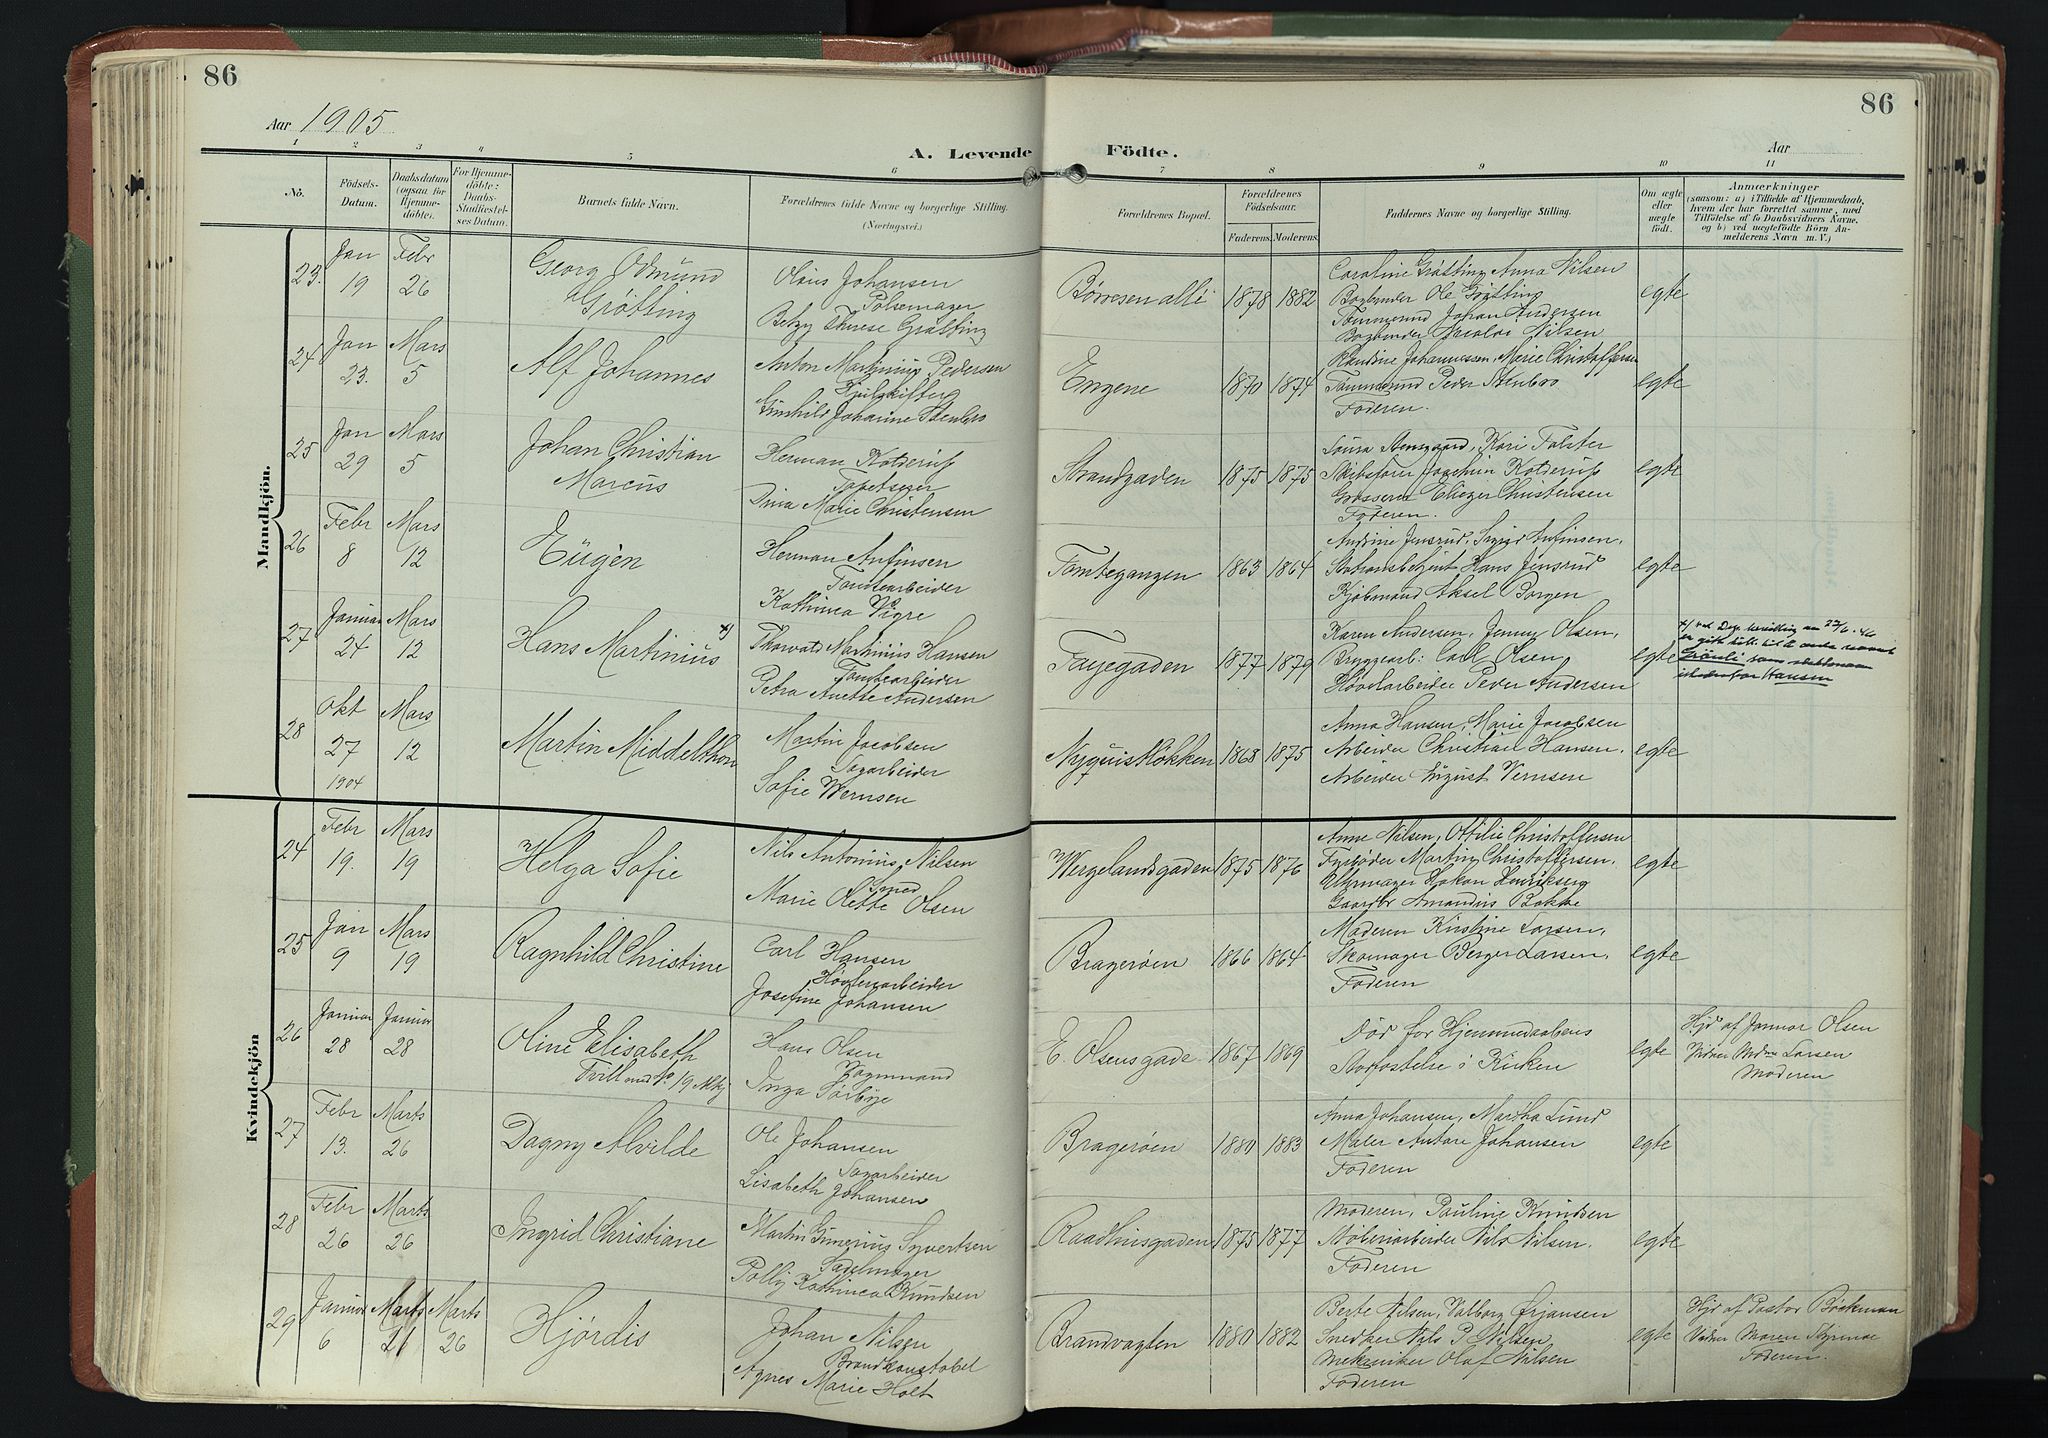 86
86
Aar 1905
Aar
A. Levende Födte.
1 2 3 4 5 6 7 8 9 10 11
No.
Födsels-
Datum.
Daabsdatum
(ogsaa for
Hjemme-
döbte).
For Hjemme-
döbte:
Daabs-
Stadfæstel-
ses Datum.
Barnets fulde Navn.
Forældrenes fulde Navne og borgerlige Stilling.
(Næringsvei.)
Forældrenes Bopæl.
Forældrenes
Fødselsaar.
Faderens. Moderens.
Faddernes Navne og borgerlige Stilling.
Om ægte
eller
uægte
födt.
Anmærkninger
(saasom: a) i Tilfælde af Hjemmedaab,
hvem der har forrettet samme, med
Tilföielse af to Daabsvidners Navne,
og b) ved uægtefödte Börn An-
melderens Navn m. V.)
Mandkjön.
23.
Jan
19
Febr
26
Georg Odmund
Grötting
Olaus Johansen
Pølsemager
Betzy Therese Grötting
Børresen allé
1878 1882
Caroline Grötting, Anna Nilsen
Bogbinder Ole Grötting
Tømmermd Johan Andersen
Bogbinder Nicolai Nilsen
egte
24
Jan
23.
Mars
5
Alf Johannes
Anton Martinius Pedersen
Hjulskifter
Gunhild Johanne Stenbro
Engene
1870 1874
Johannessen, Marie Christoffersen
Tømmermd Peder Stenbro
Faderen.
egte
25
Jan
29
Mars
5
Johan Christian
Marcus
Herman Kolderup
Tapetserer
Dina Marie Christensen
Strandgaden
1875 1875
Laura Kari Falster
Skibsfører Joachim Kolderup
Grosserer Eliezer Christensen
Faderen.
egte
26
Febr
8
Mars
12
Eugen
Herman Anfinsen
Tomtearbeider
Kathinca Vigre
Tomtegangen
1863 1864
Andrine Jensrud, Sigrid Anfinsen,
Stationsbetjent Hans Jensrud
Kjøbmand Aksel Borgen
egte
27
Januar
24
Mars
12
Hans Martinius x)
Thorvald Martinius Hansen
Tomtearbeider
Petra Anette Andersen
Fayegaden
1877 1879
Karen Andersen, Jenny Olsen,
Bryggearb: Carl Olsen
Høvlarbeider Peder Andersen
egte
x) ved Dep. bevilling av 27/6-46
er gitt till. til å anta navnet
Grönli som slektsnavn
istedenfor Hansen
28
Okt
27
1904
Mars
12
Martin Middelthon
Martin Jacobsen
Sagarbeider
Sofie Wernsen
Nyquistløkken
1868 1875
Anna Hansen, Marie Jacobsen
Arbeider Christian Hansen.
Arbeider August Vernsen
egte
Kvindekjön
24
Febr
19.
Mars
19
Helga Sofie
Nils Antonius Nilsen
Smed
Marie Olette Olsen
Wergelandsgaden
1875 1876
Anne Nilsen, Ottilie Christoffersen
Fyrbøder Martin Christoffersen.
Uhrmager Hakon Henriksen
Gaardbr Amandus Bakke
egte
25
Jan
9
Mars
19
Ragnhild Christine
Carl Hansen
Høvleriarbeider
Josefine Johansen
Bragerøen
1866 1864
Moderen Kirstine Larsen,
Skomager Berger Larsen.
Faderen
egte
26
Januar
28
Januar
28
Oline Elisabeth
Tvill med No 19 Mkj
Hans Olsen
Vognmand
Inga Sørbye
E. Olsensgade
1867 1869
Død før Hjemmedaabens
Stadfæstelse i Kirken
egte
Hjd af Jormor Olsen
Vidner Larsen
Moderen
27
Febr
13.
Marts
26
Dagny Alvilde
Ole Johansen
Sagarbeider
Lisabeth Johansen
Bragerøen
1880 1883
Anna Johansen, Martha Lund
Maler Anton Johansen
Faderen
egte
28
Febr
26
Marts
26
Ingrid Christiane
Martin Gunerius Syvertsen
Sadelmager
Polly Kathinca Knudsen
Raadhusgaden
1875 1877
Moderen, Pauline Knudsen
Støberiarbeider Nils Nilsen.
Faderen
egte
29
Januar
6
Marts
21
Marts
26
Hjørdis
Johan Nilsen
Brandkonstabel
Agnes Marie Holt
Brandvagten
1880 1882
Berte Nilsen, Valborg Ørjansen
Snedker Nils P. Nilsen
Mekaniker Olaf Nilsen
Faderen
egte
Hjd af Pastor Bøckman
Vidner Maren
Faderen.